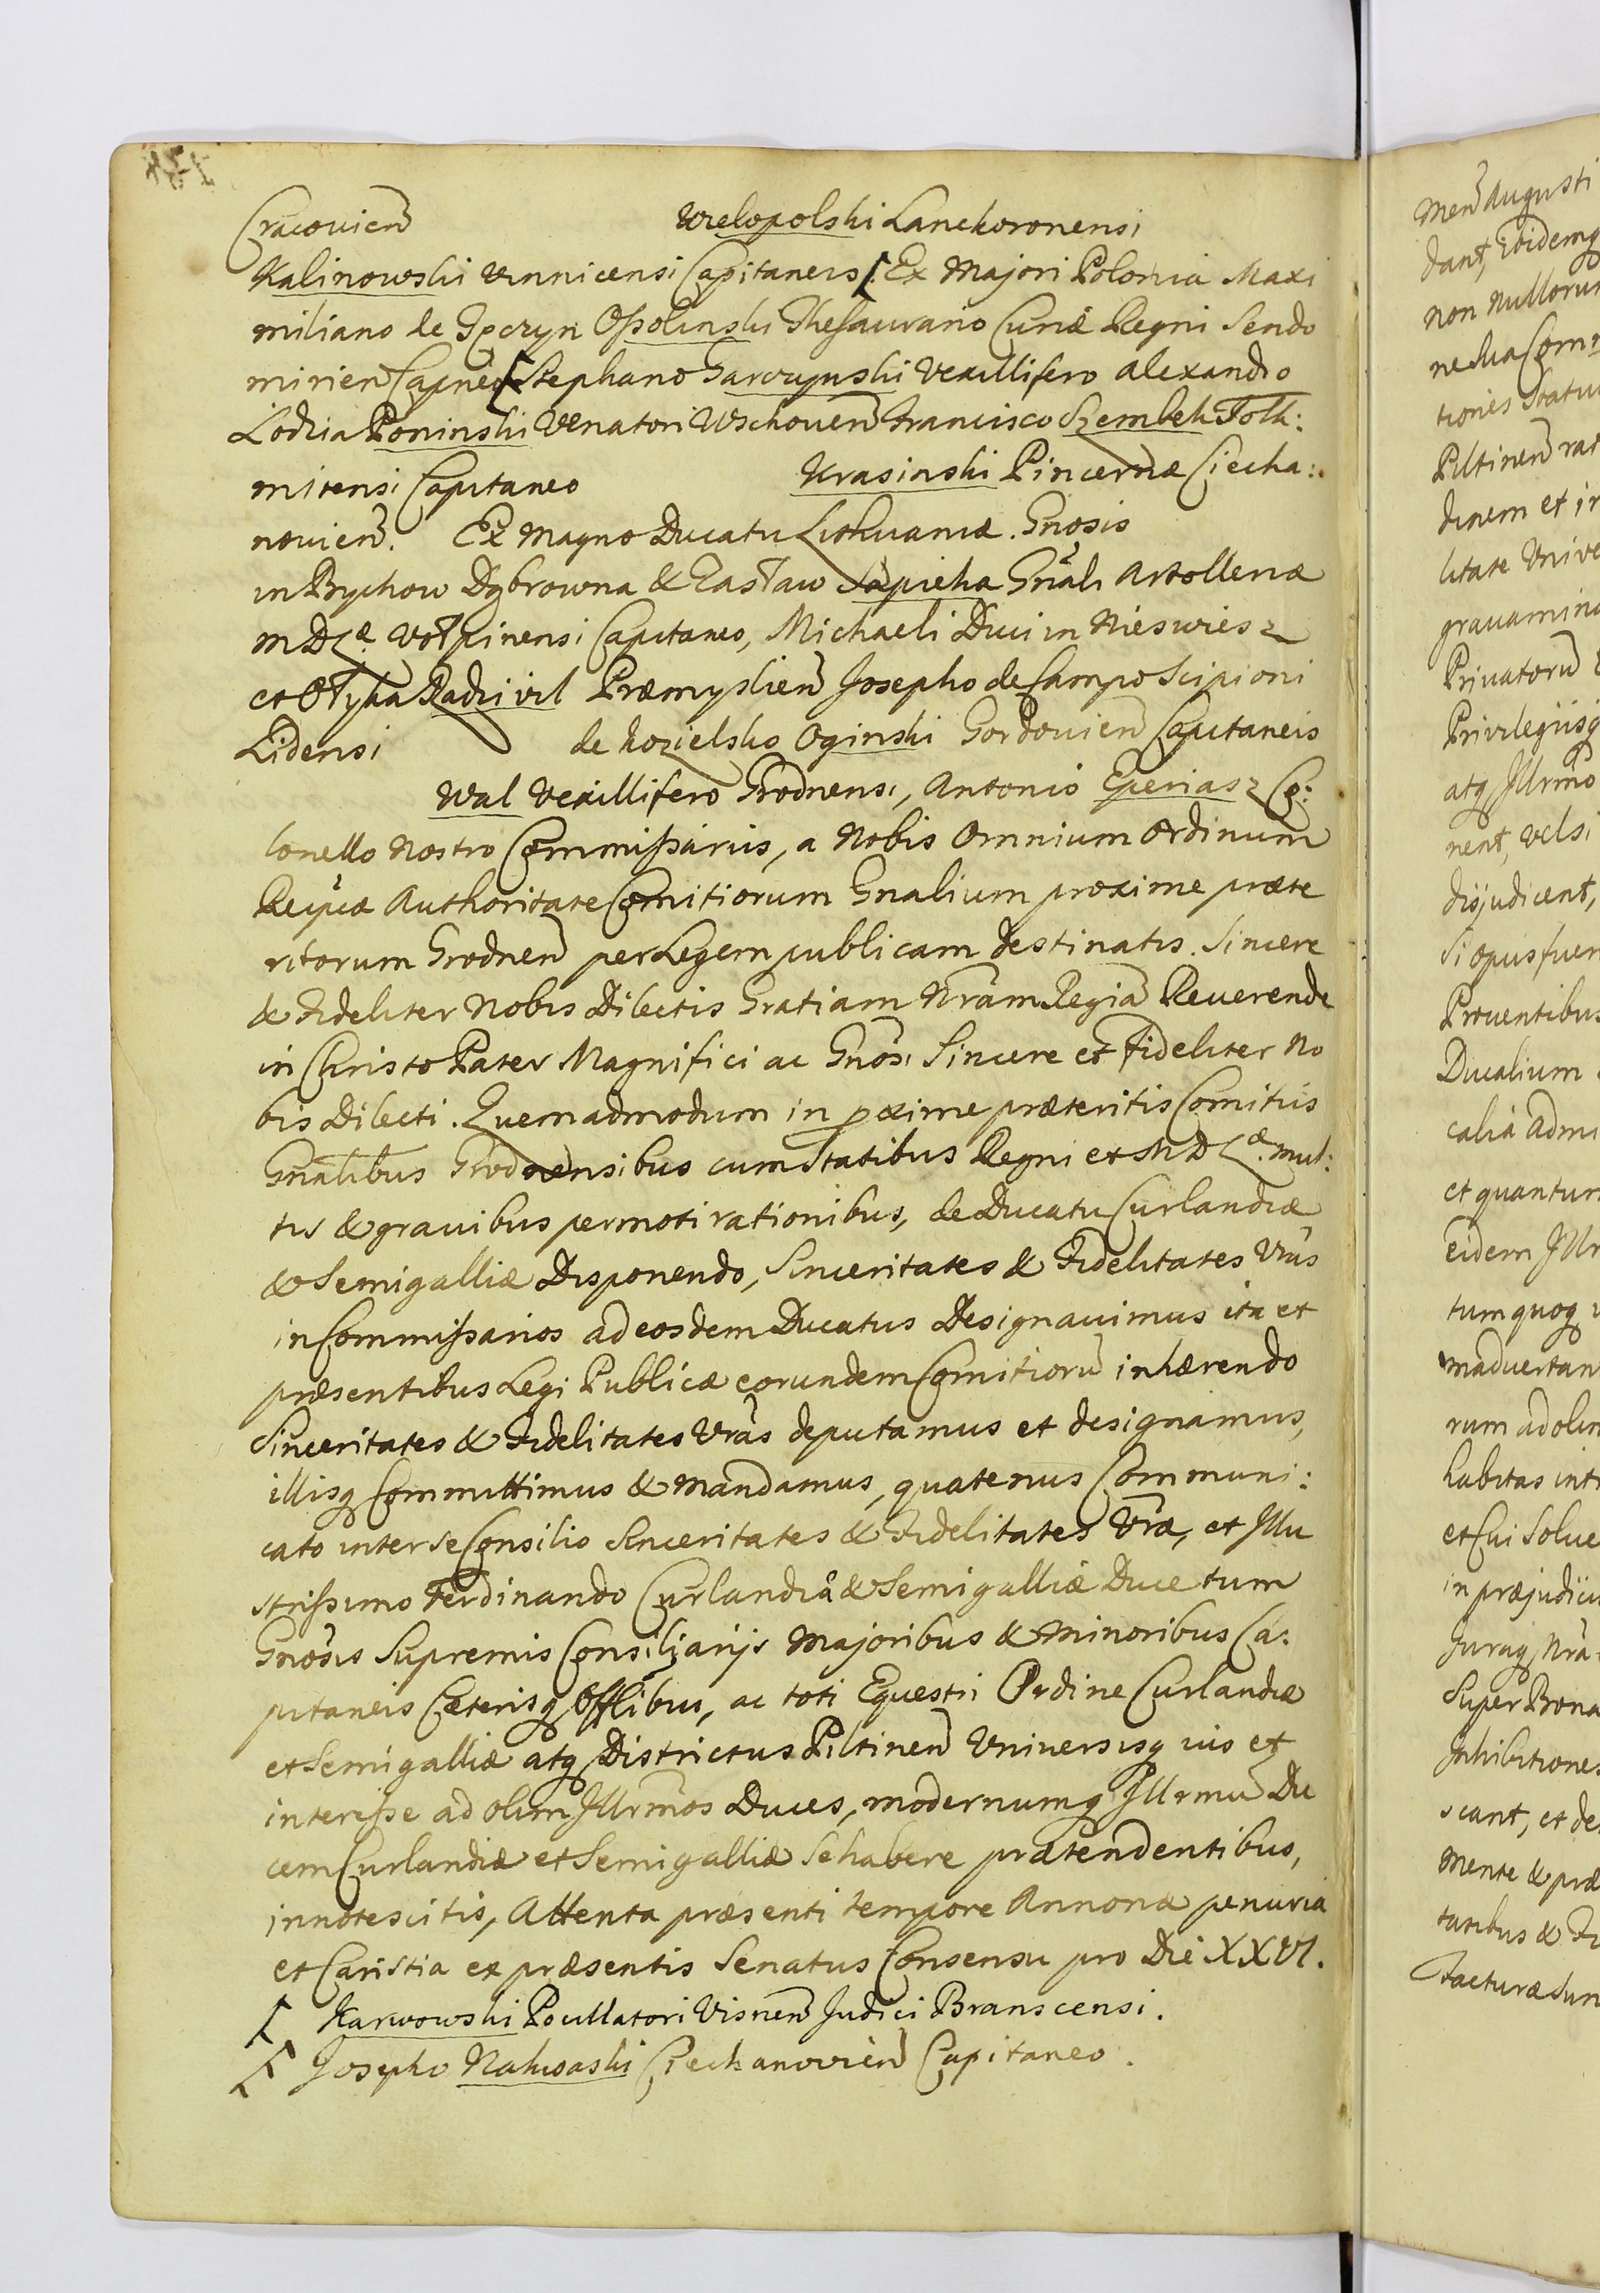 Cracovien̄ Wielopolski Lanckoronensi
Kalinowski Vinnicensi Capitaneis [. Ex Majori Polonia Maxi
miliano de Tęczyn Ossolinski Thesaurario Curiæ Regni Sendo
mirien̄ Capneo [ Stephano Garczynski Vexillifero Alexandro
Lodzia Poninski Venatori Wschouen̄ Francisco Szembek Tolk:
mitensi Capitaneo Krasinski Pincernæ Ciecha:
novien̄. Ex Magno Ducatu Lithuaniæ. Gnosis
in Bychow Dąbrowna & Zasław Sapieha Gnāli Artolleriæ
M D L.æ Wołpinensi Capitaneo, Michaeli Duci in Nieswiesz
et Ołyka Radzivil Præmyslien̄ Josepho de Campo Scipioni
Lidensi de Kozielsko Oginski Gordovien̄ Capitaneis
Wal Vexillifero Grodnensi, Antonio Eperiasz Co:
lonello Nostro Commissariis, a Nobis Omnium Ordinum
Reipcæ Authoritate Comitiorum Gnalium proxime præte
ritorum Grodnen̄ per Legem publicam destinatis. Sincere
& Fideliter Nobis Dilectis Gratiam Nrām Regiā Reverende
in Christo Pater Magnifici ac Gnōsi Sincere et Fideliter No
bis Dilecti. Quemadmodum in pxime præteritis Comitiis
Gnālibus Grodnensibus cum Statibus Regni et M D L.æ mul:
tis & gravibus permoti rationibus, de Ducatu Curlandiæ
& Semigalliæ Disponendo, Sinceritates & Fidelitates Vrās
in Commissarios ad eosdem Ducatus Designavimus ita et
præsentibus Legi Publicæ eorundem Comitiorū inhærendo
Sinceritates & Fidelitates Vrās deputamus et designamus,
illisq Committimus & mandamus, quatenus Communi:
cato inter se Consilio Sinceritates & Fidelitates Vrāe, et Illu
strissimo Ferdinando Curlandiæ & Semigalliæ Duce tum
Gnōsis Supremis Consiliarijs Majoribus & Minoribus Ca:
pitaneis Cæterisq Offlibus, ac toti Equestri Ordine Curlandiæ
et Semigalliæ atq Districtus Piltinen̄ Universisq ius et
interesse ad olim Illrmos Duces, modernumq Illrmū Du
cem Curlandiæ et Semigalliæ se habere prætendentibus,
innotescitis, Attenta præsenti tempore Annonæ penuria
et Caristia ex præsentis Senatus Consensu pro Die XXVI.
[ Karwowski Pocillatori Visnen̄ Judici Branscensi.
[ Josepho Nakwaski Ciechanovien̄ Capitaneo.
men̄ Augusti
dant, Ibidemq
non Nullorum
tiones Statu
Piltinen̄ rat
dinem et in
litate Unive
gravamina
Privatorū
Privilegiisq
atq Illrmo
nent, vel si
disjudicent,
Si opus fuer
Proventibus
Ducalium
calia admi
et quantum
eidem Illr
tum quoq
madvertan
rum ad olim
habitas intr
et Cui Solve
in præjudiciu
Juraq Nrā
Super Bona
Inhibitiones
scant, et de
mente & præ
tatibus & Fi
Facturæ sun